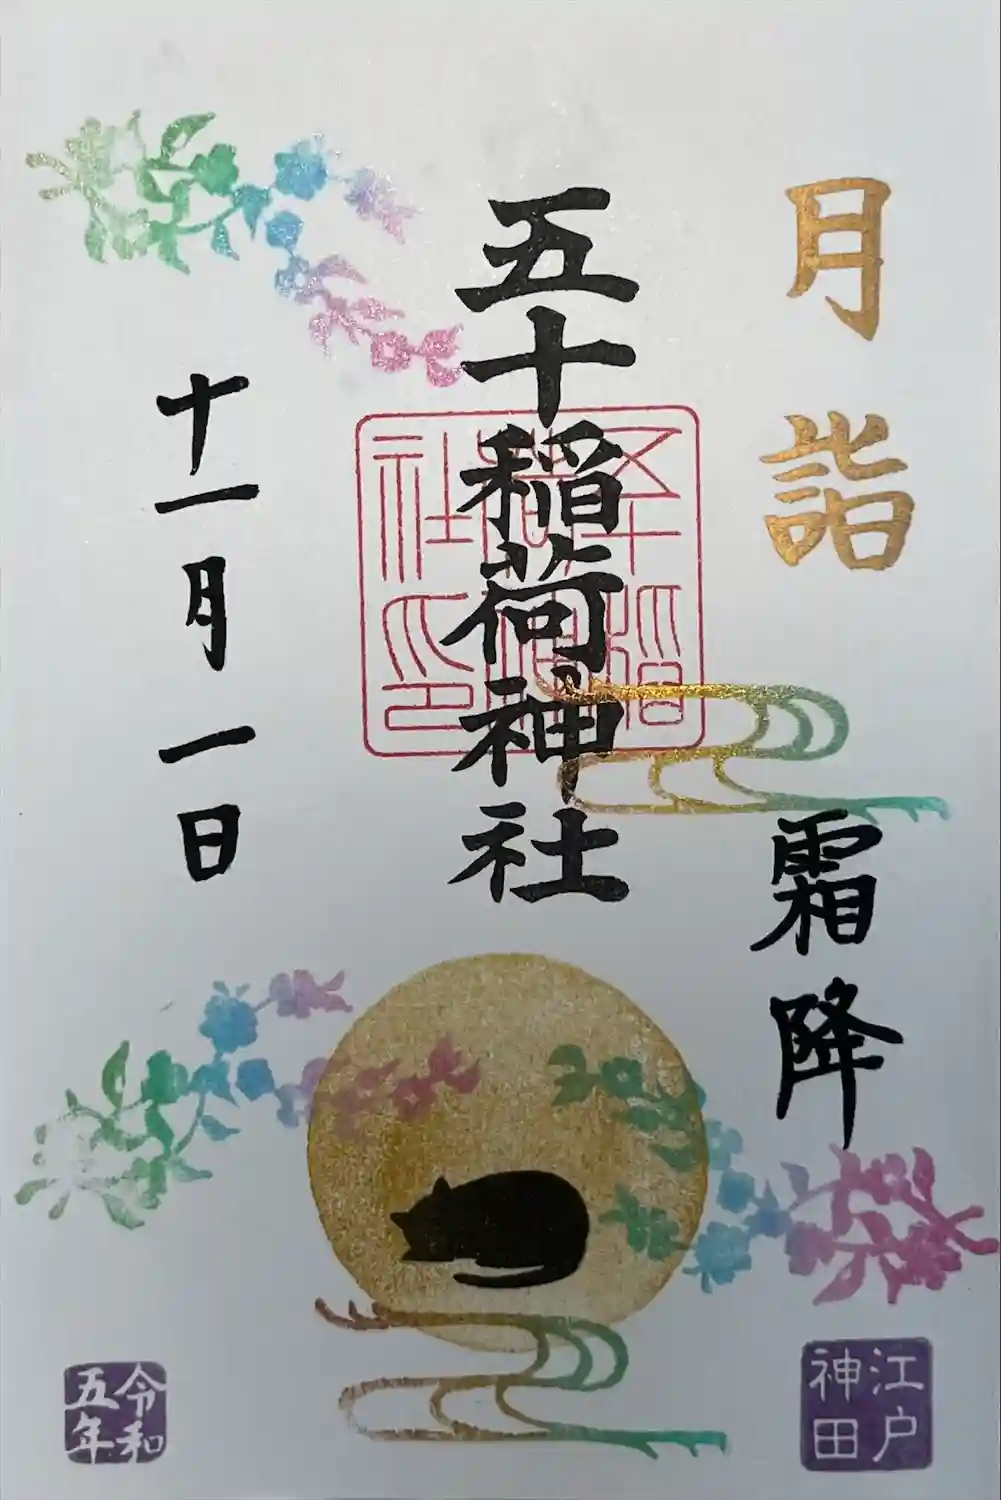 月詣
霜降
五十稲荷神社
五十稲荷神社印
十一月一日
江戸神田
令和五年